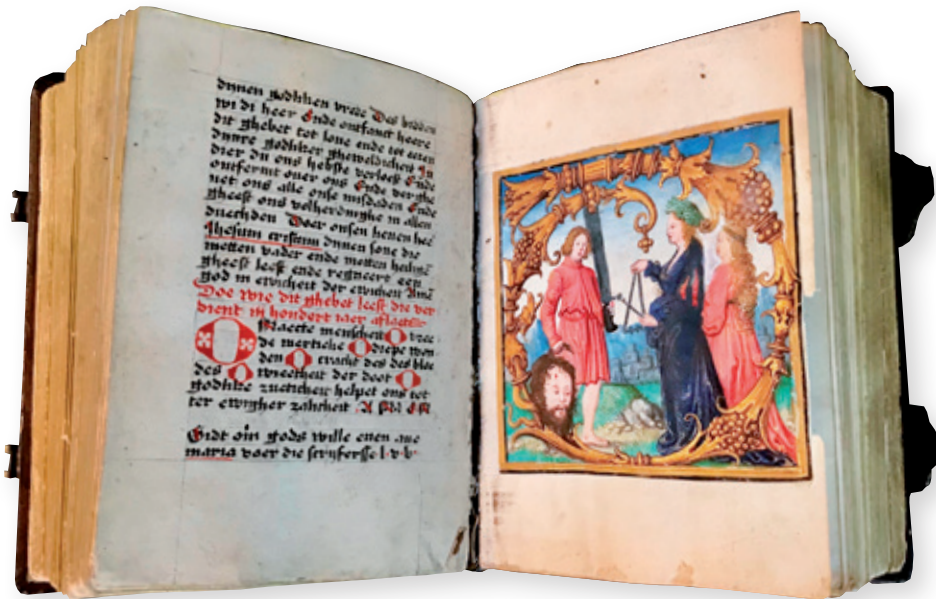 dynen godliken vrede Des bidden
wi di heer Ende ontfanct heere
dit ghebet tot loue ende tot eeren
dynre godliker gheweldicheit In
dier du ons hebste verloest Ende
ontfermt ouer ons Ende verghe
uet ons alle onse misdaden Ende
gheeft ons volherdinghe in allen
duechden Doer onsen heuen hee
Ihesum cristum dynen sone die
metten vader ende metten heilighē
gheest leeft ende regneert een
god in ewicheit der ewichen Amē
Soe wie dit ghebet leest die ver
dient in hondert iaer aflaets
O menscheit O
de O diepe won
den O cracht des des bloe
des O der doot O
godlike zueticheit helpet ons tot
ter ewigher
Bidt om gods wille enen aue
maria voer die scryfersse l v b